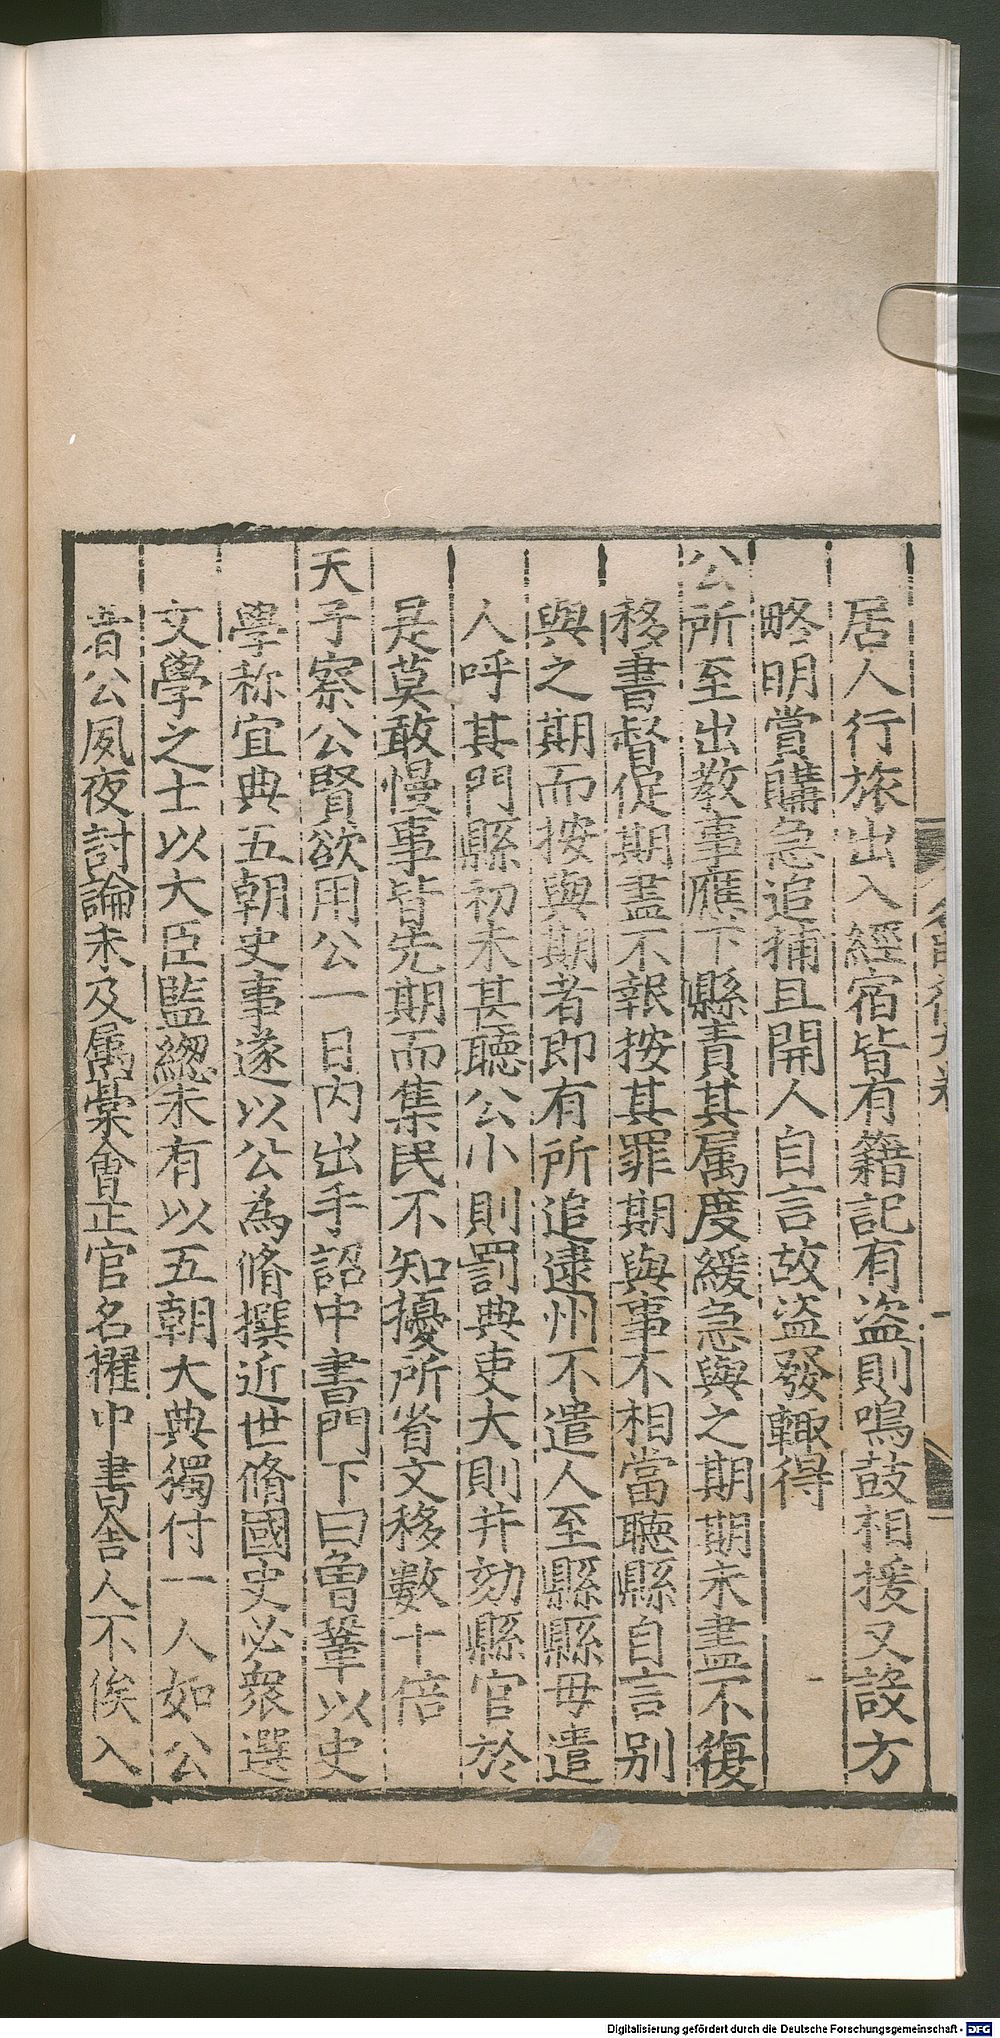 居人行旅出入經宿皆有籍記有盜則鳴鼓相援又設方
略明賞購急追捕且開人自言故盜發輙得
公所至出教事應下縣責其属度緩急與之期期未盡不復
移書督促期盡不報按其罪期與事不相當聽縣自言别
與之期而按與期者即有所追逮州不遣人至縣縣毋遣
人呼其門縣初未甚聽公小則罰典吏大則并劾縣官於
是莫敢慢事皆先期而集民不知擾所省文移數十倍
天子察公賢欲用公一日内出手詔中書門下曰曾鞏以史
學称宜典五朝史事遂以公為脩撰近世脩國史必衆選
文學之士以大臣監緫未有以五朝大典獨付一人如公
者公夙夜討論未及属藁會正官名擢中書舍人不俟入
Digitalisierung gefördert durch die Deutsche Forschungsgemeinschaft - DFG